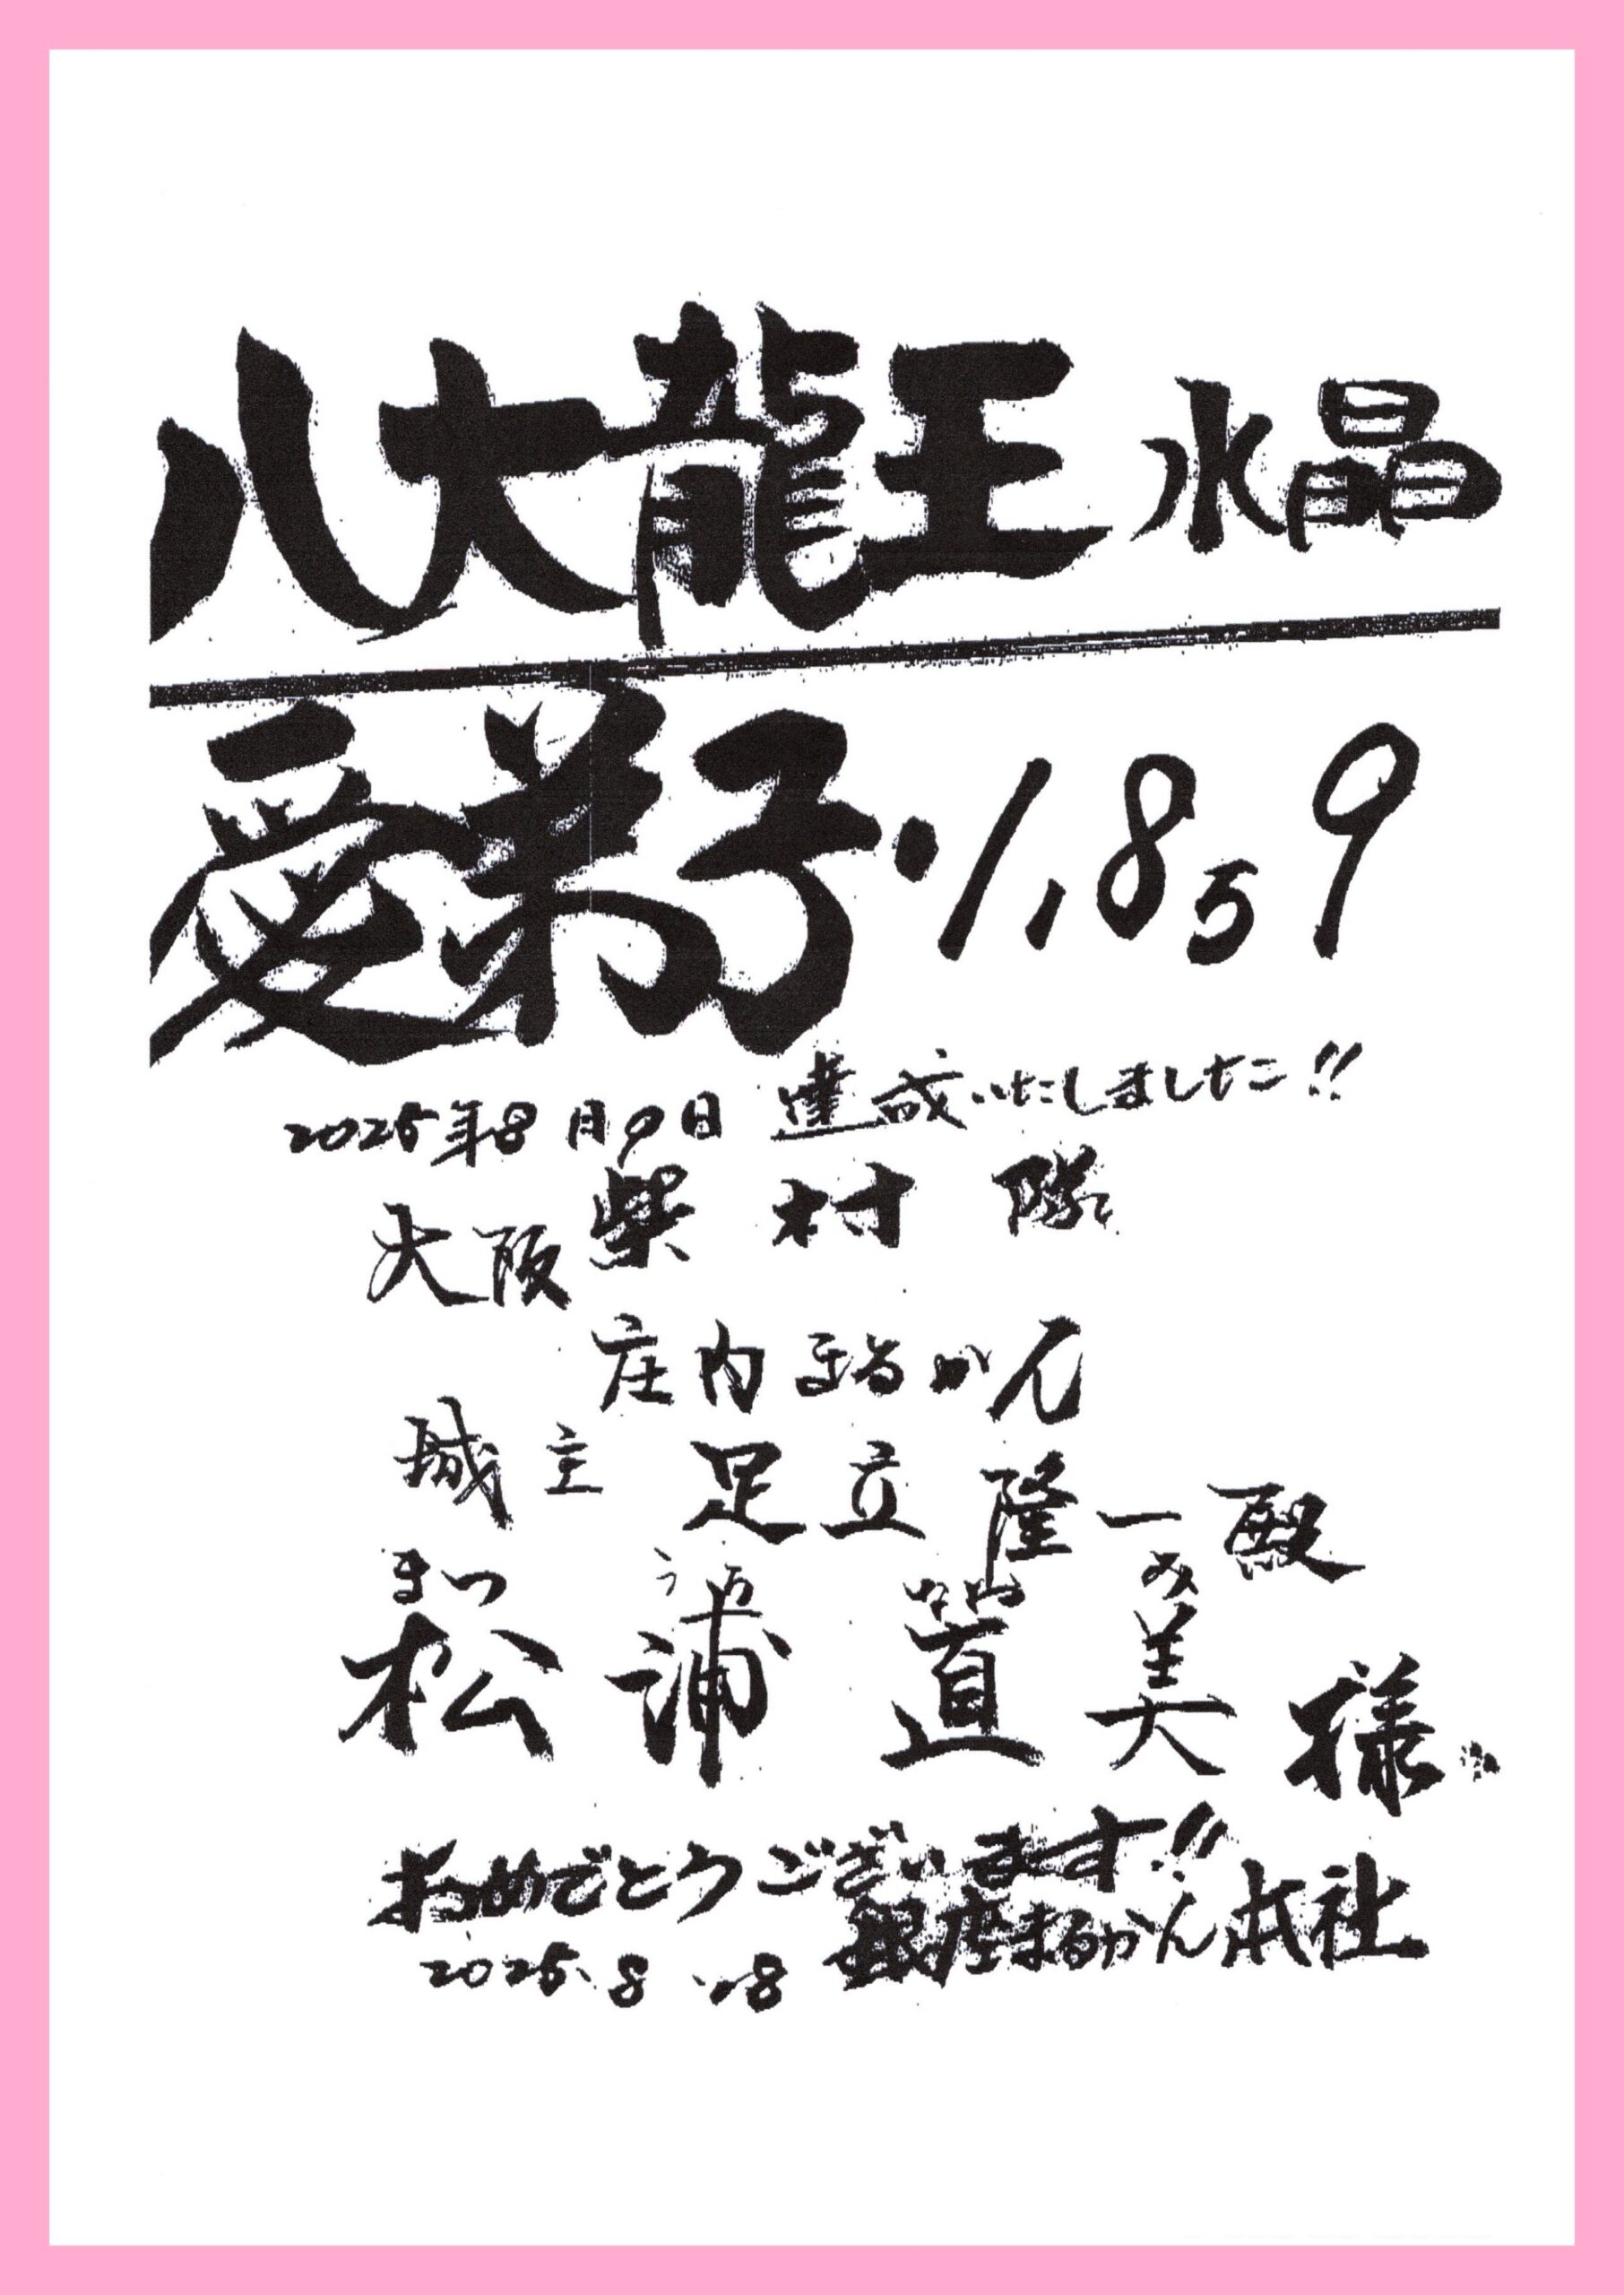 八大龍王 水晶
愛弟子・1,859
2025年8月9日 達成いたしました!!
大阪 柴村隊
庄内まるかん
城主 足立隆一殿
まつ うら なおみ
松浦 直美 様
おめでとうございます!!
銀座まるかん本社
2025.8.18